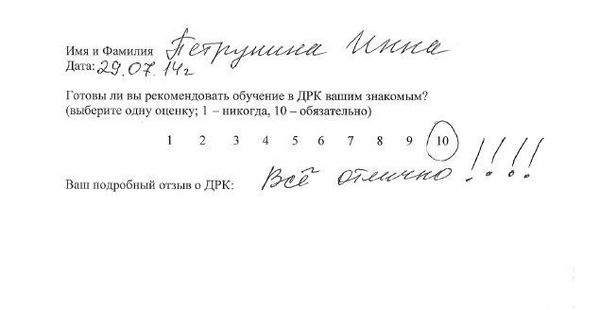 Имя и Фамилия Петрунина Инна
Дата: 29.07.14г
Готовы ли вы рекомендовать обучение в ДРК вашим знакомым?
(выберите одну оценку; 1 – никогда, 10 – обязательно)
1 2 3 4 5 6 7 8 9 10
Ваш подробный отзыв о ДРК: Всё отлично!!!!